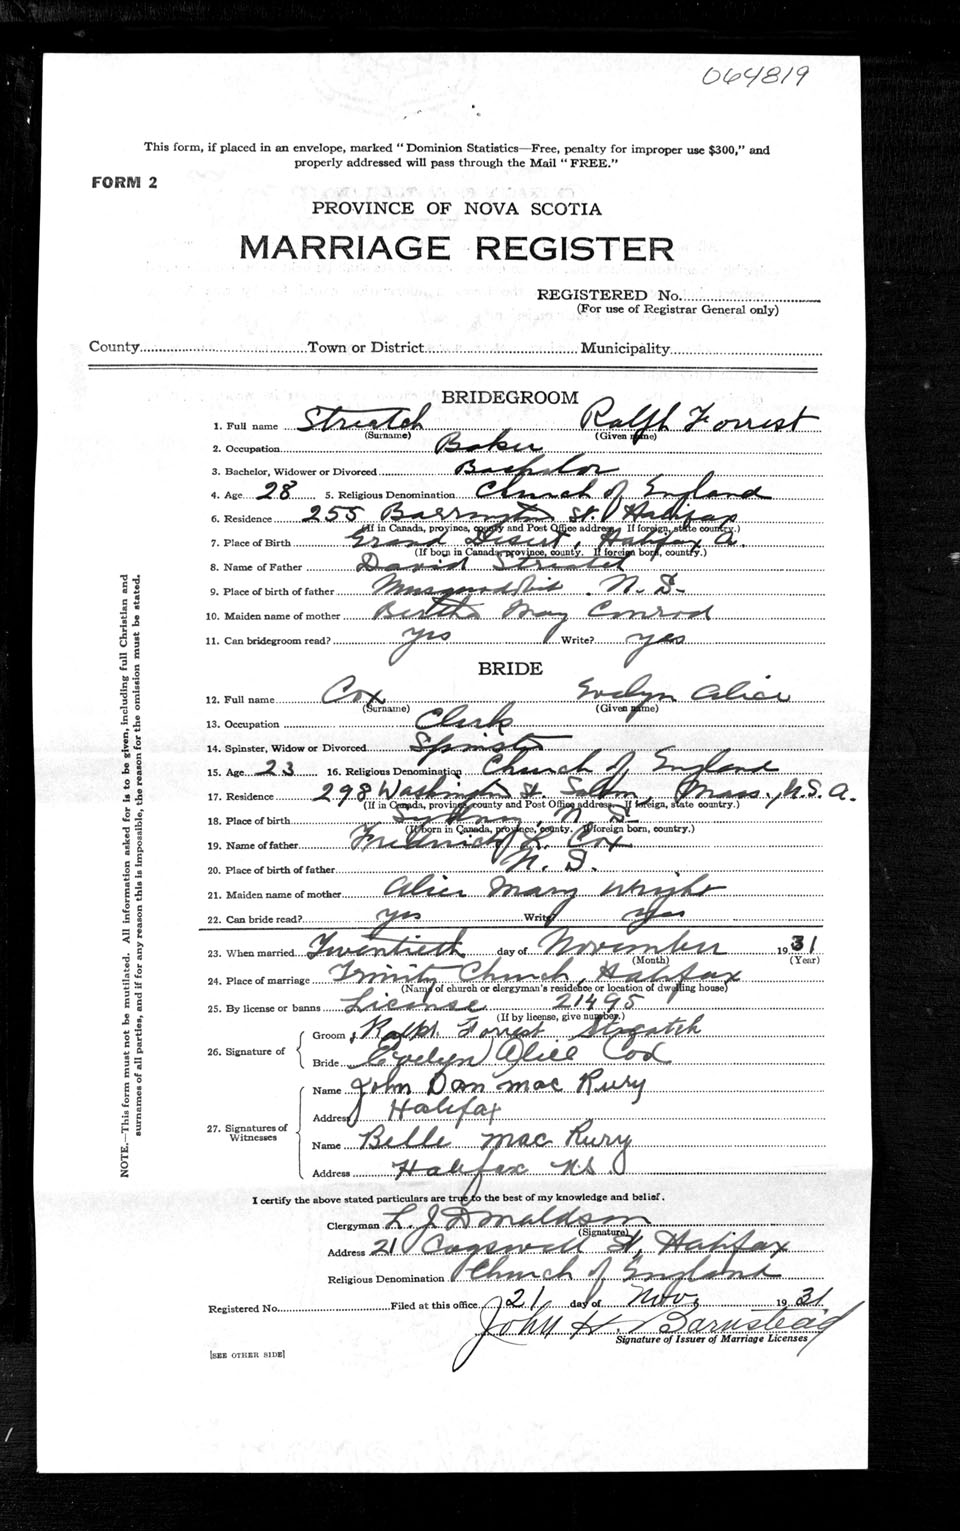 064819
This form, if placed in an envelope, marked "Dominion Statistics—Free, penalty for improper use $300," and
properly addressed will pass through the Mail "FREE."
FORM 2
PROVINCE OF NOVA SCOTIA
MARRIAGE REGISTER
REGISTERED No.
(For use of Registrar General only)
County Town or District Municipality
BRIDEGROOM
1. Full name Streatch Ralph Forrest
(Surname) (Given name)
2. Occupation Baker
3. Bachelor, Widower or Divorced Bachelor
4. Age 28 5. Religious Denomination Church of England
6. Residence 255 Barrington St. Halifax
(If in Canada, province, county and Post Office address. If foreign, state country.)
7. Place of Birth Grand Desert, Halifax
(If born in Canada, province, county. If foreign born, country.)
8. Name of Father David Streatch
9. Place of birth of father N. S.
10. Maiden name of mother Bertha May Conrod
11. Can bridegroom read? yes Write? yes
BRIDE
12. Full name Cox Evelyn Alice
(Surname) (Given name)
13. Occupation Clerk
14. Spinster, Widow or Divorced Spinster
15. Age 23 16. Religious Denomination Church of England
17. Residence 298 Washington St. Mass., U.S.A.
(If in Canada, province, county and Post Office address. If foreign, state country.)
18. Place of birth Sydney, N. S.
(If born in Canada, province, county. If foreign born, country.)
19. Name of father Fredrick Cox
20. Place of birth of father N. S.
21. Maiden name of mother Alice Mary Wright
22. Can bride read? yes Write? yes
23. When married Twentieth day of November 1931
(Month) (Year)
24. Place of marriage Trinity Church, Halifax
(Name of church or clergyman's residence or location of dwelling house)
25. By license or banns License 21495
(If by license, give number.)
26. Signature of
Groom Ralph Forrest Streatch
Bride Evelyn Alice Cox
27. Signatures of Witnesses
Name John Dan MacRury
Address Halifax
Name Belle MacRury
Address Halifax NS
I certify the above stated particulars are true to the best of my knowledge and belief.
Clergyman L. J. Donaldson
(Signature)
Address 21 Cogswell St, Halifax
Religious Denomination Church of England
Registered No. Filed at this office 21 day of Nov. 1931
John H. Barnstead
Signature of Issuer of Marriage Licenses
[SEE OTHER SIDE]
NOTE.—This form must not be mutilated. All information asked for is to be given, including full Christian and
surnames of all parties, and if for any reason this is impossible, the reason for the omission must be stated.